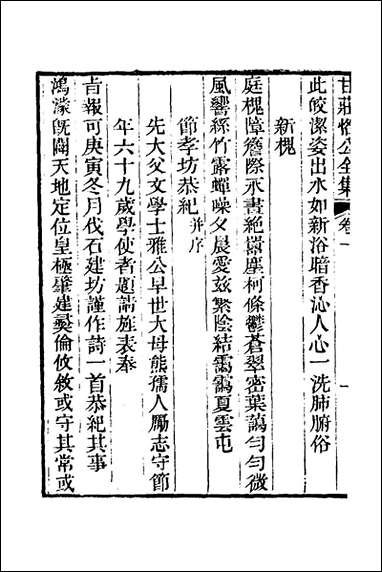 甘莊恪公全集 卷一 一
此皎潔姿出水如新浴暗香沁人心一洗肺腑俗
新槐
庭槐幛簷際永晝絕囂塵柯條鬱蒼翠密葉藹勻勻微
風響絲竹露蟬噪夕晨愛茲繁陰結靄靄夏雲屯
節孝坊恭紀并序
先大父文學士雅公早世大母熊孺人勵志守節
年六十九歲學使者題請旌表奉
旨報可庚寅冬月伐石建坊謹作詩一首恭紀其事
鴻濛既闢天地定位皇極肇建彝倫攸敘或守其常或